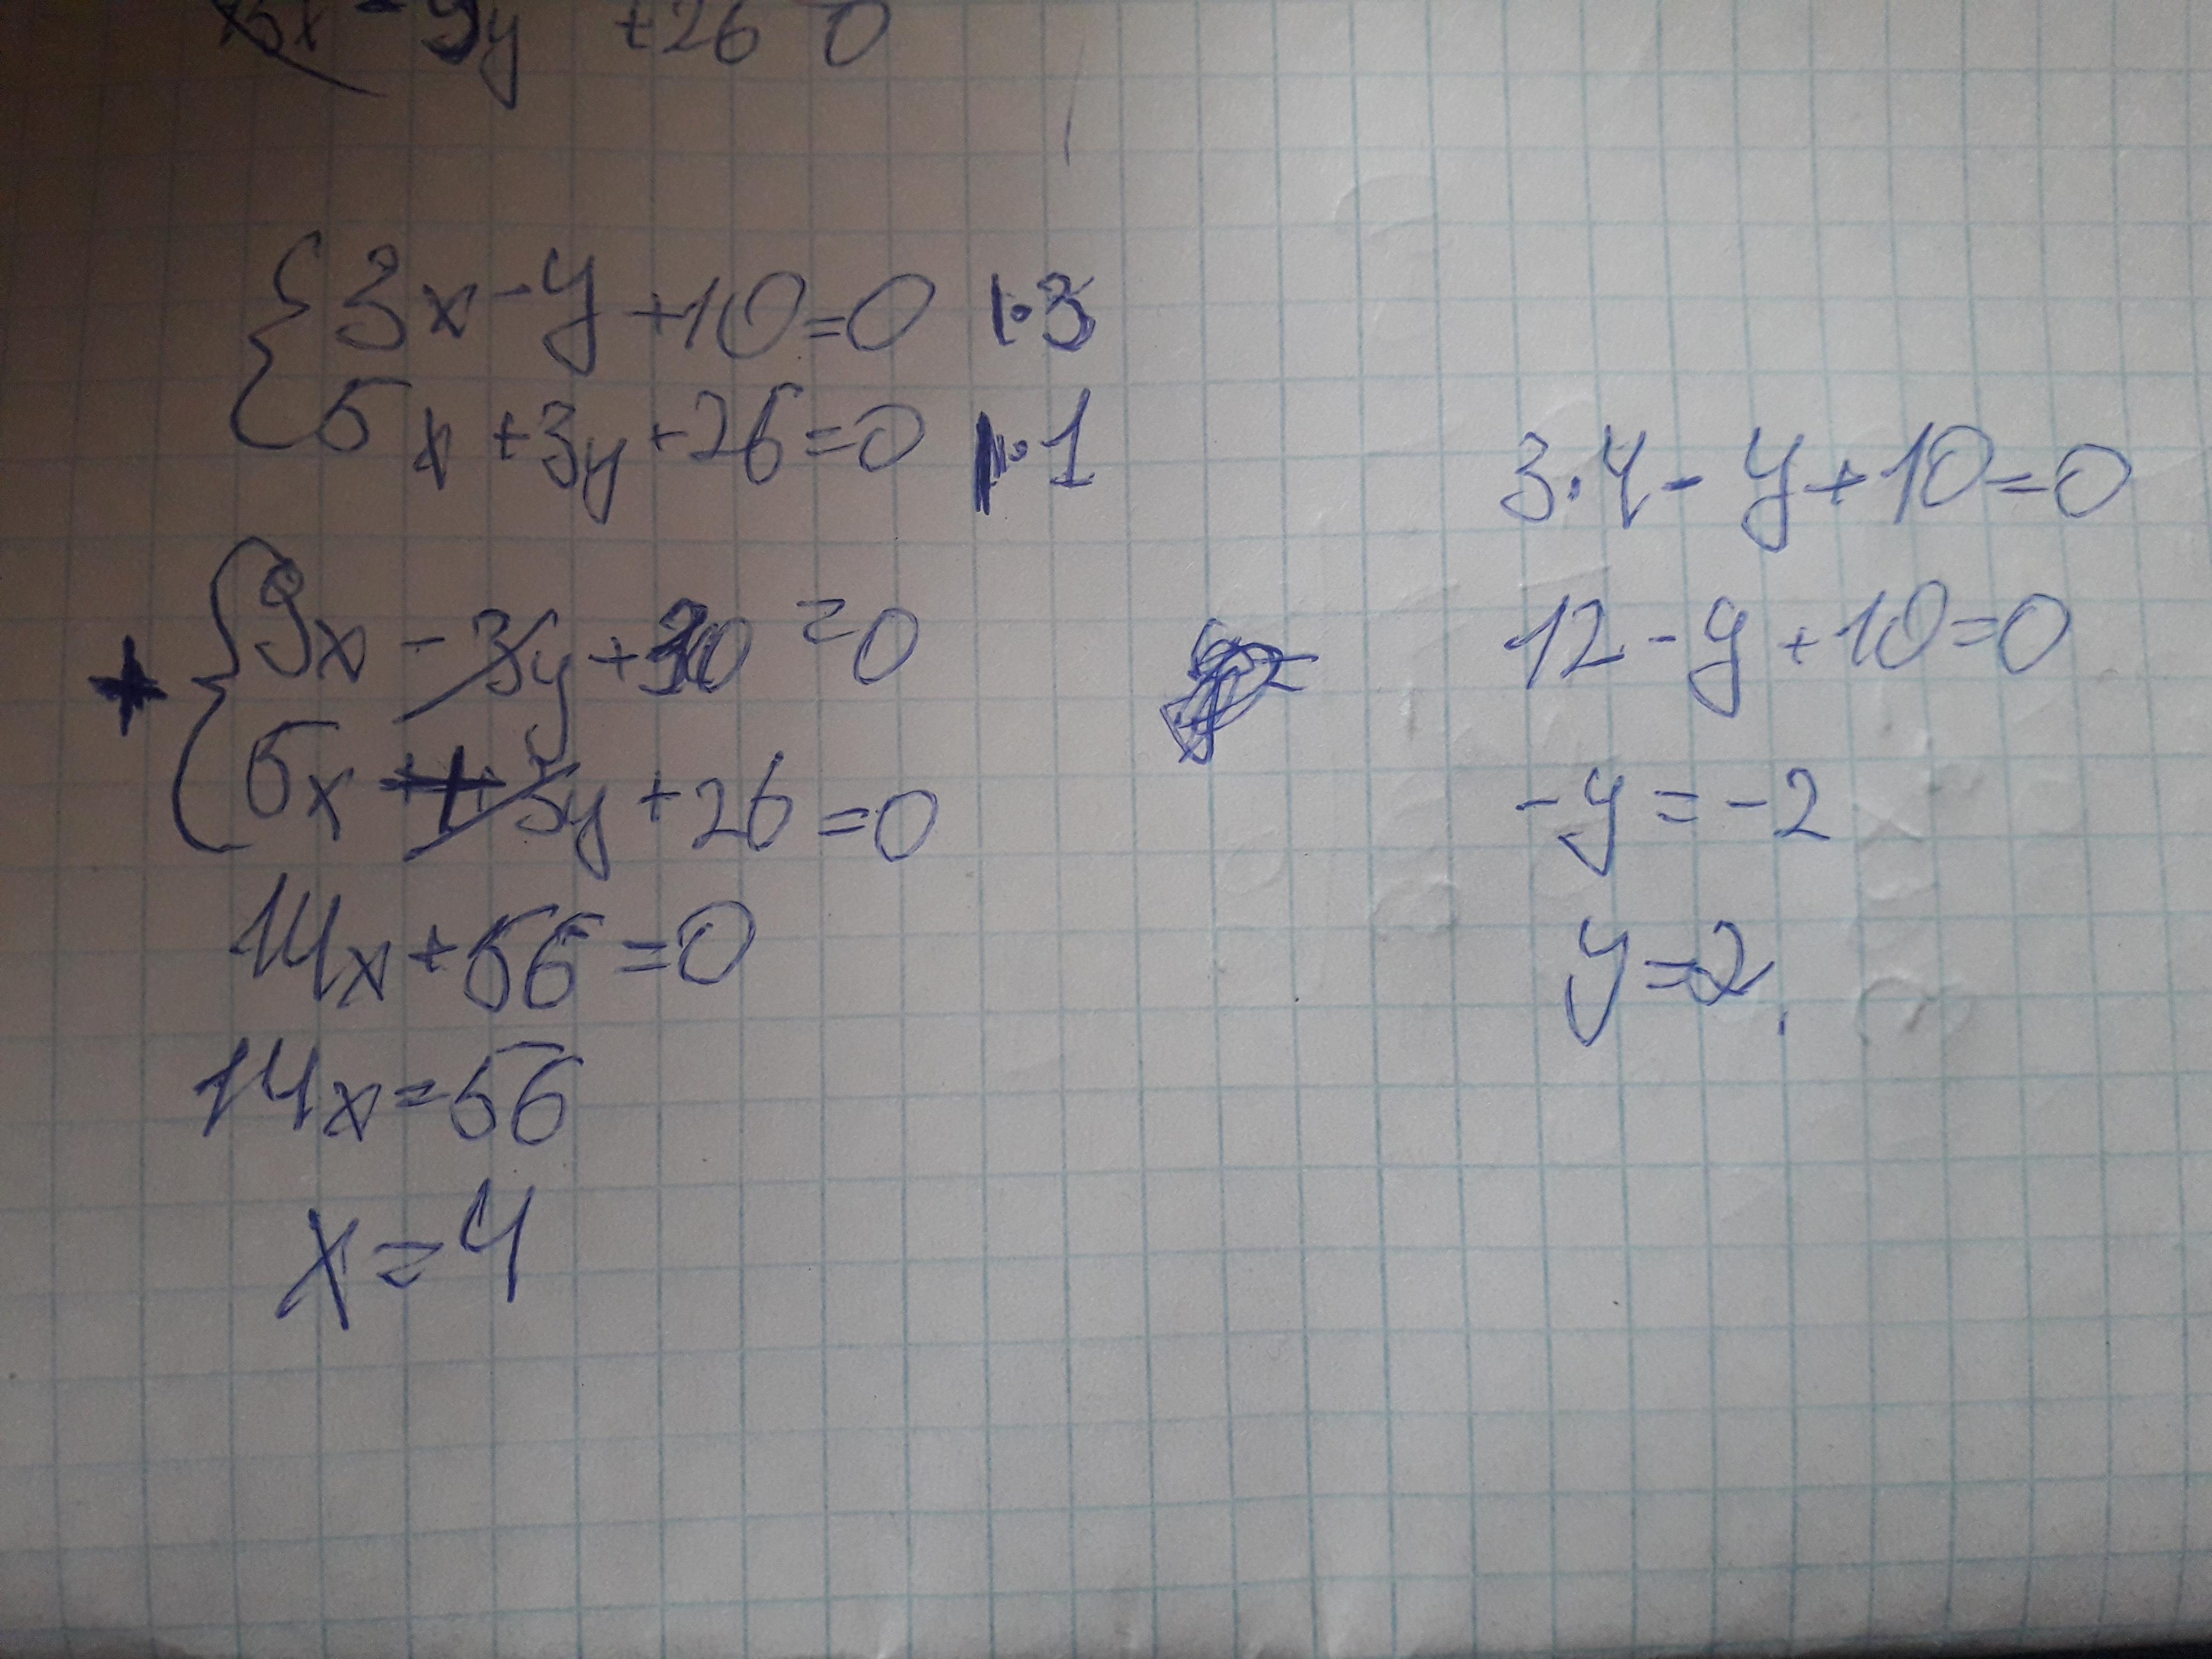 5x - 9y +26 0
3x - y + 10 = 0 |·3
5x + 3y + 26 = 0 |·1
+ 9x - 3y + 30 = 0
5x + 3y + 26 = 0
14x + 56 = 0
14x = 56
x = 4
3·4 - y + 10 = 0
12 - y + 10 = 0
-y = -2
y = 2